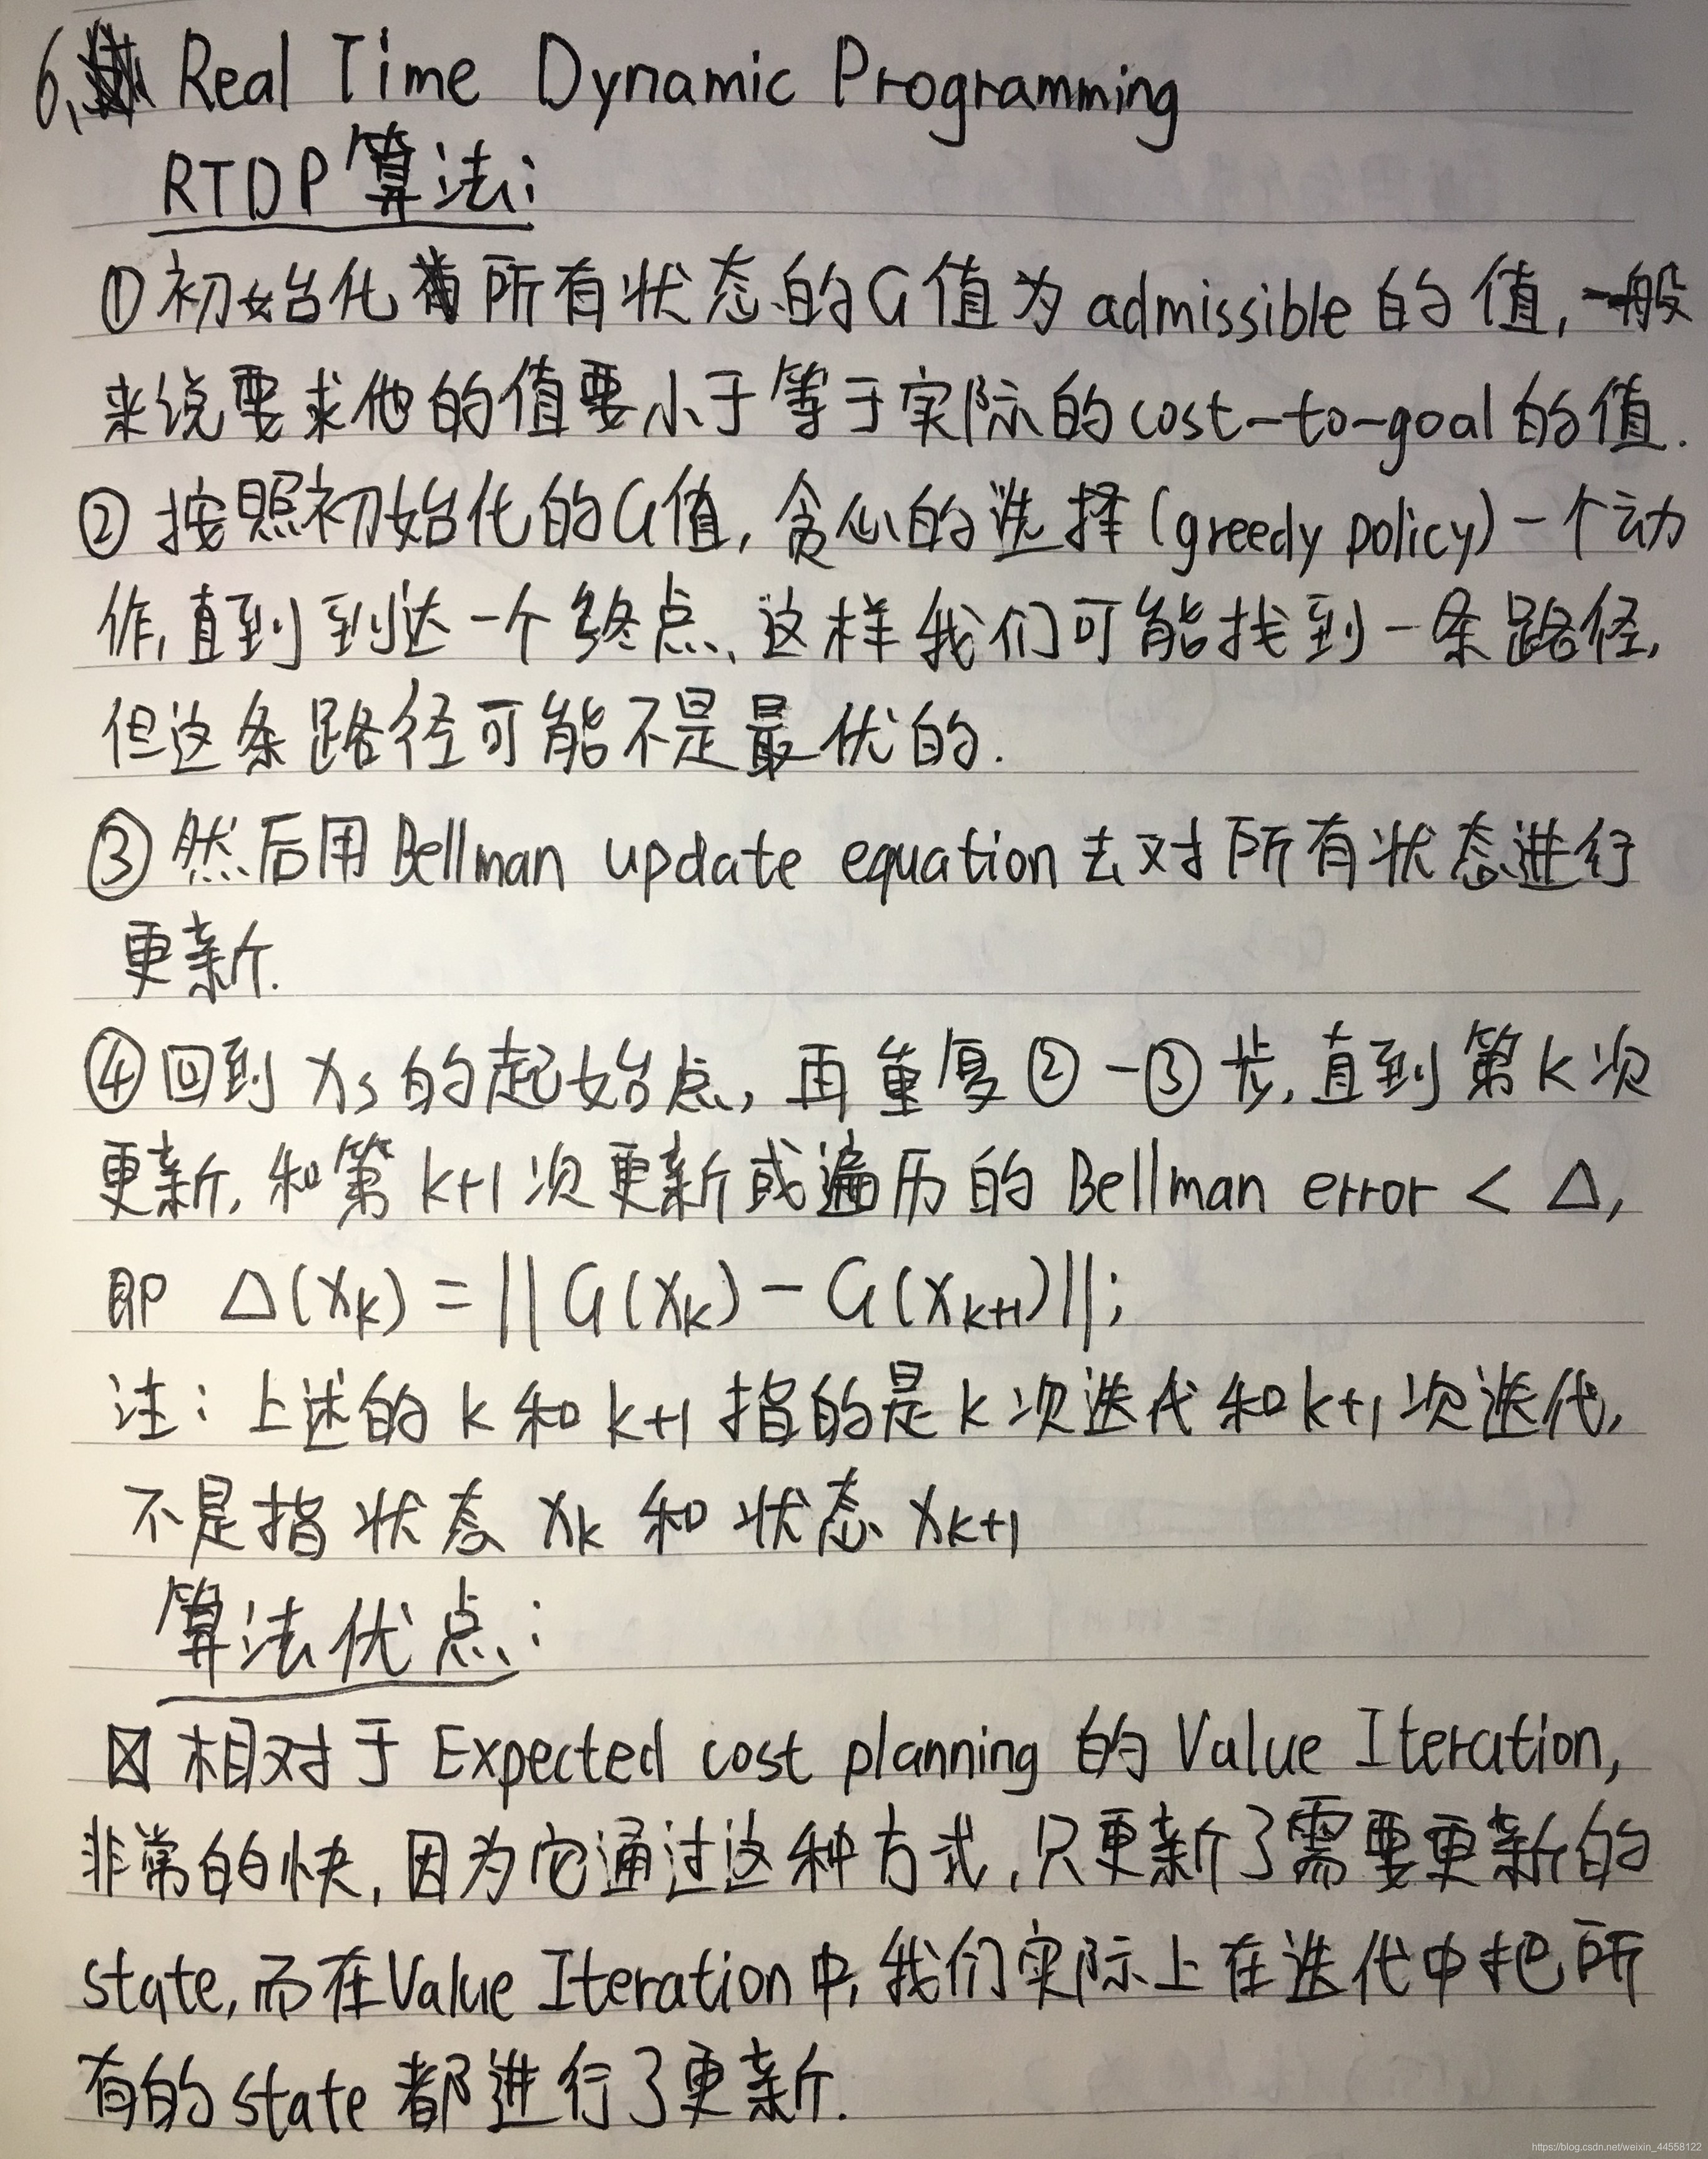 6, Real Time Dynamic Programming
RTDP算法:
①初始化所有状态的G值为admissible的值,一般
来说要求他的值要小于等于实际的cost-to-goal的值.
②按照初始化的G值,贪心的选择(greedy policy)一个动
作,直到到达一个终点、这样我们可能找到一条路径,
但这条路径可能不是最优的.
③然后用Bellman update equation去对所有状态进行
更新.
④回到Xs的起始点,再重复②-③步,直到第k次
更新,和第k+1次更新或遍历的Bellman error < Δ,
即 Δ(Xk) = ||G(Xk) - G(Xk+1)||;
注:上述的k和k+1指的是k次迭代和k+1次迭代,
不是指状态Xk和状态Xk+1
算法优点:
相对于Expected cost planning的Value Iteration,
非常的快,因为它通过这种方式,只更新了需要更新的
state,而在Value Iteration中,我们实际上在迭代中把所
有的state都进行了更新.
https://blog.csdn.net/weixin_44558122